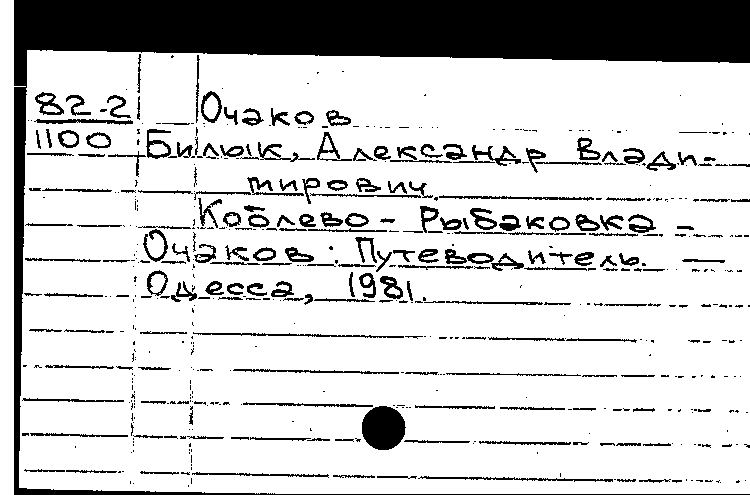 82-2 Очаков
1100 Билык, Александр Влади-
мирович.
Коблево - Рыбаковка -
Очаков : Путеводитель. —
Одесса, 1981.